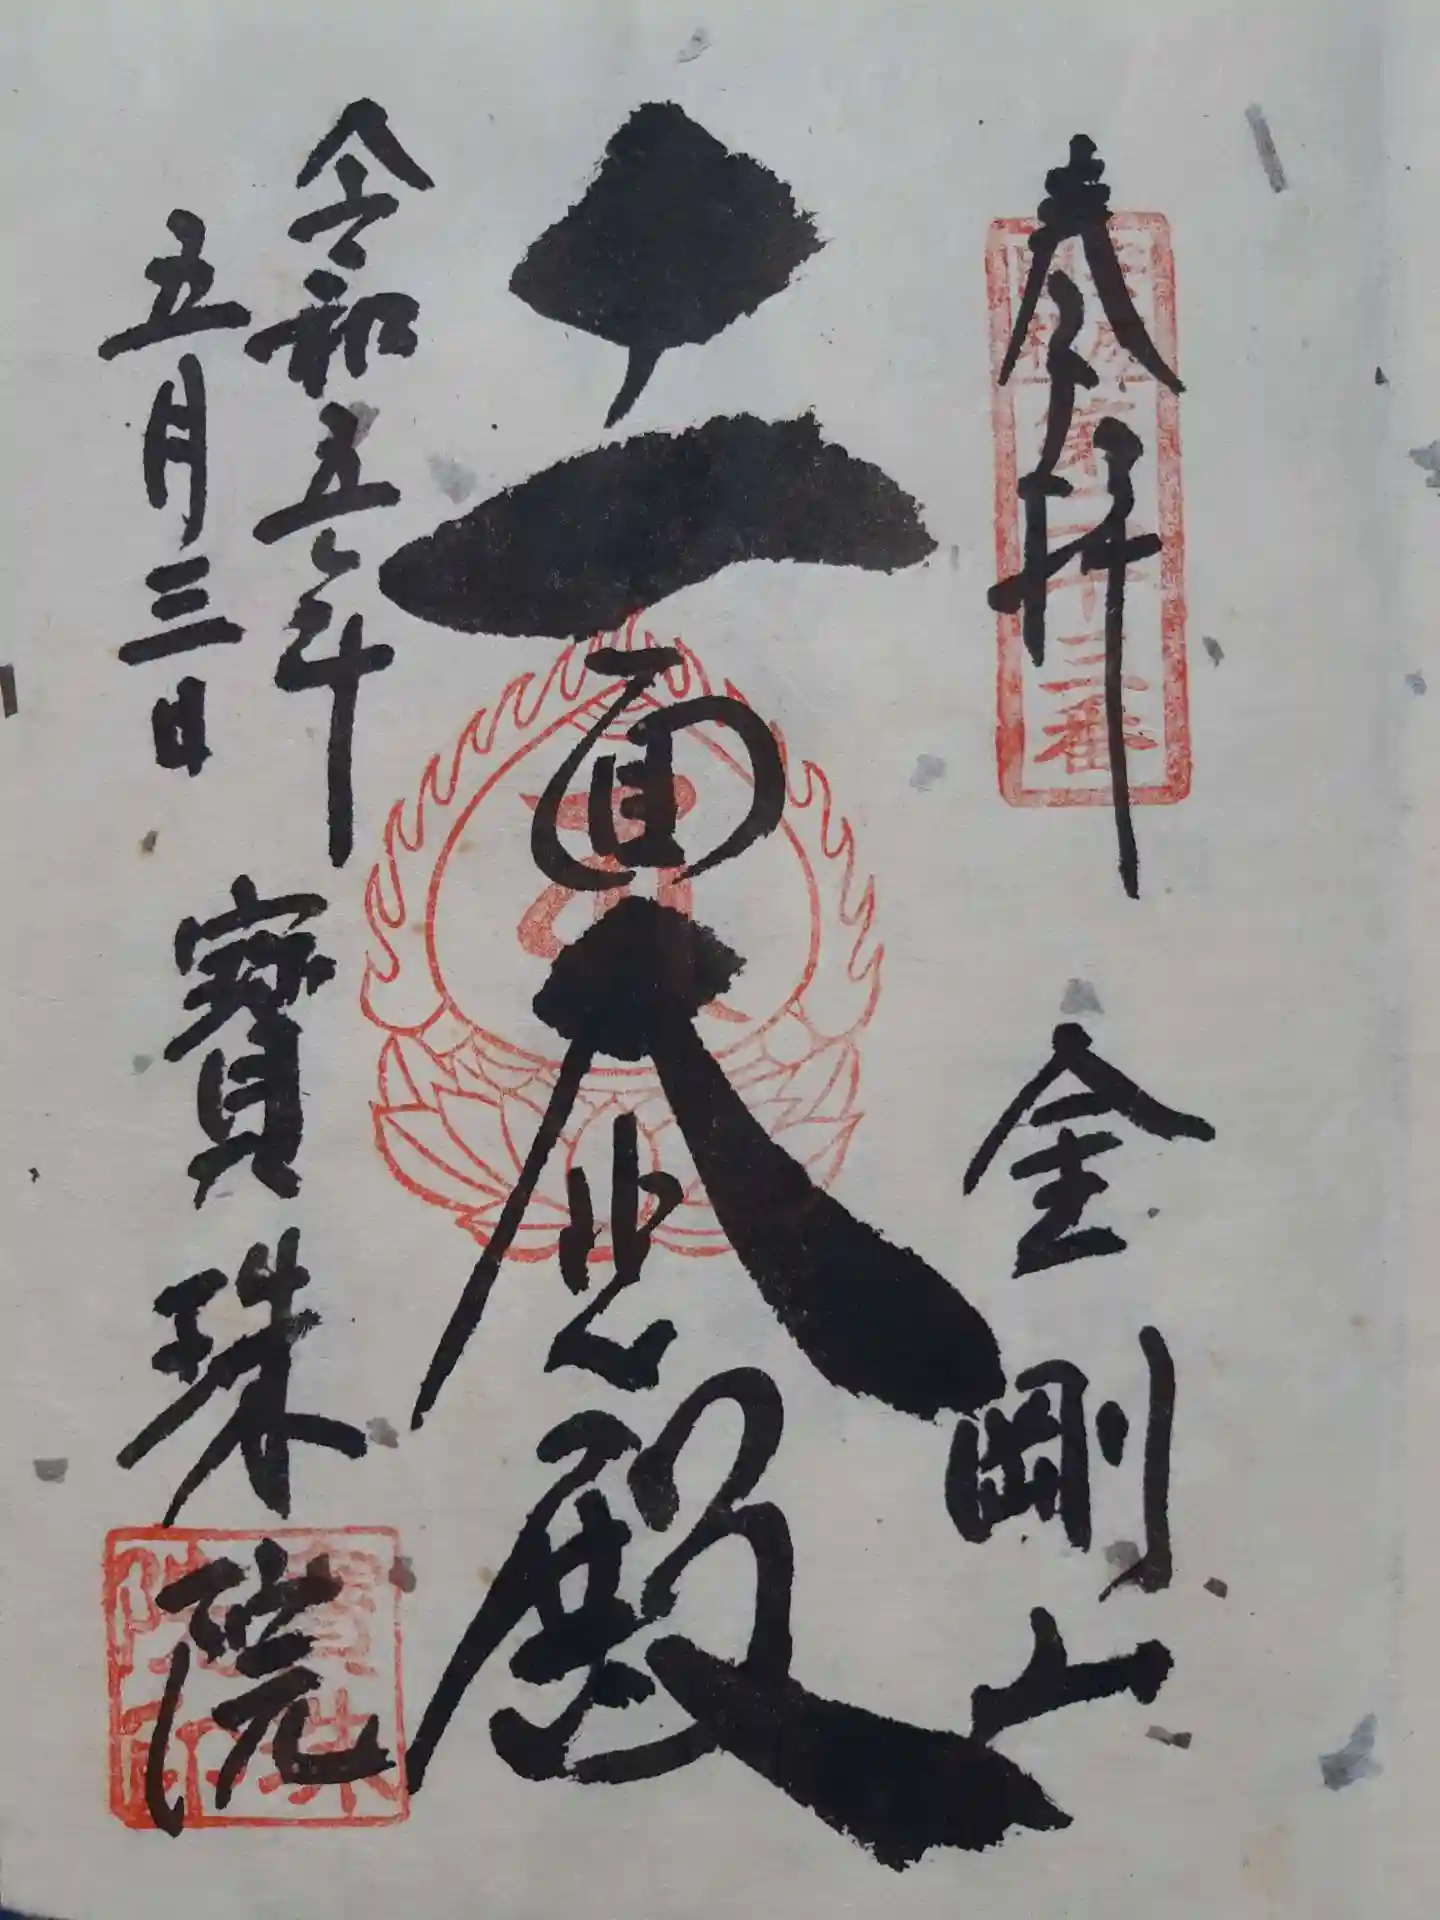 奉拝
第二十三番
金剛山
十一面大悲殿
令和五年
五月三日
寳珠院